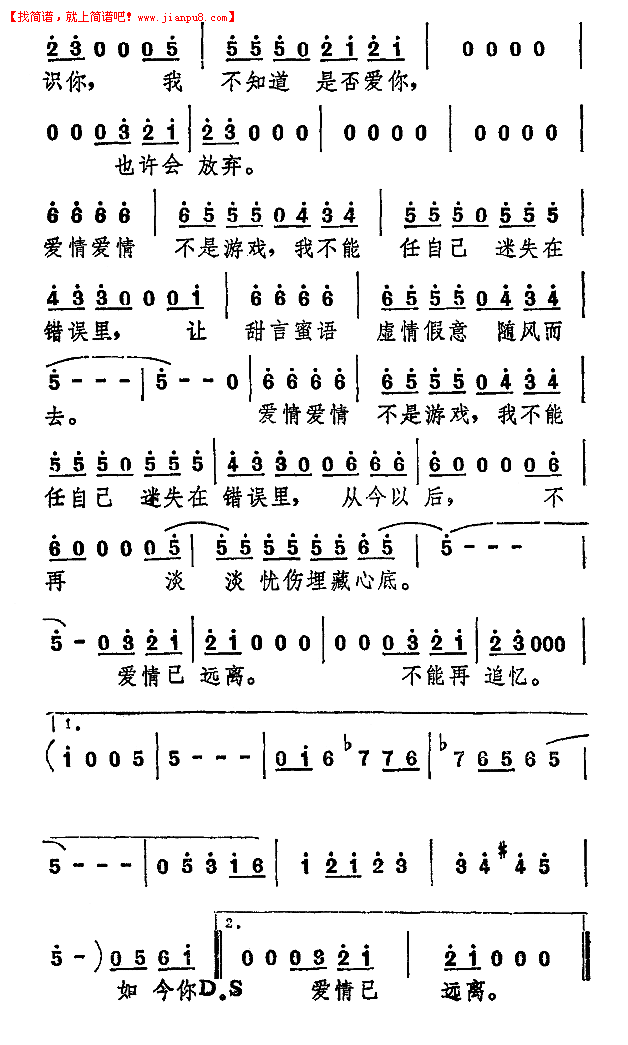 【找简谱，就上简谱吧！www.jianpu8.com】
2 3 0 0 0 5 | 5 5 5 0 2 1 2 1 | 0 0 0 0 |
识你， 我 不知道 是否爱你，
0 0 0 3 2 1 | 2 3 0 0 0 | 0 0 0 0 | 0 0 0 0 |
也许会 放弃。
6 6 6 6 | 6 5 5 5 0 4 3 4 | 5 5 5 0 5 5 5 |
爱情爱情 不是游戏，我不能 任自己 迷失在
4 3 3 0 0 0 1 | 6 6 6 6 | 6 5 5 5 0 4 3 4 |
错误里， 让 甜言蜜语 虚情假意 随风而
5 - - - | 5 - - 0 | 6 6 6 6 | 6 5 5 5 0 4 3 4 |
去。 爱情爱情 不是游戏，我不能
5 5 5 0 5 5 5 | 4 3 3 0 0 6 6 6 | 6 0 0 0 0 6 |
任自己 迷失在 错误里， 从今以 后， 不
6 0 0 0 0 5 | 5 5 5 5 5 5 6 5 | 5 - - - |
再 淡 淡 忧伤埋藏心底。
5 - 0 3 2 1 | 2 1 0 0 0 | 0 0 0 3 2 1 | 2 3 0 0 0 |
爱情已 远离。 不能再 追忆。
1.
( 1 0 0 5 | 5 - - - | 0 1 6 ♭7 7 6 | ♭7 6 5 6 5 |
5 - - - | 0 5 3 1 6 | 1 2 1 2 3 | 3 4 #4 5 |
2.
5 - ) 0 5 6 1 ‖ 0 0 0 3 2 1 | 2 1 0 0 0 ‖
如 今你 D.S 爱情已 远离。